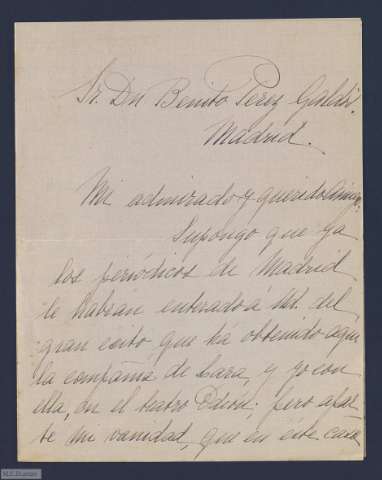 Sr. Dn Benito Pérez Galdós.
Madrid.
Mi admirado y querido Amigo:
Supongo que ya
los periódicos de Madrid
le habran enterado á Vd. del
gran exito que ha obtenido aquí
la compañia de Lara, y yo con
ella, en el teatro Odeón; pero apar
te mi vanidad, que en éste caso